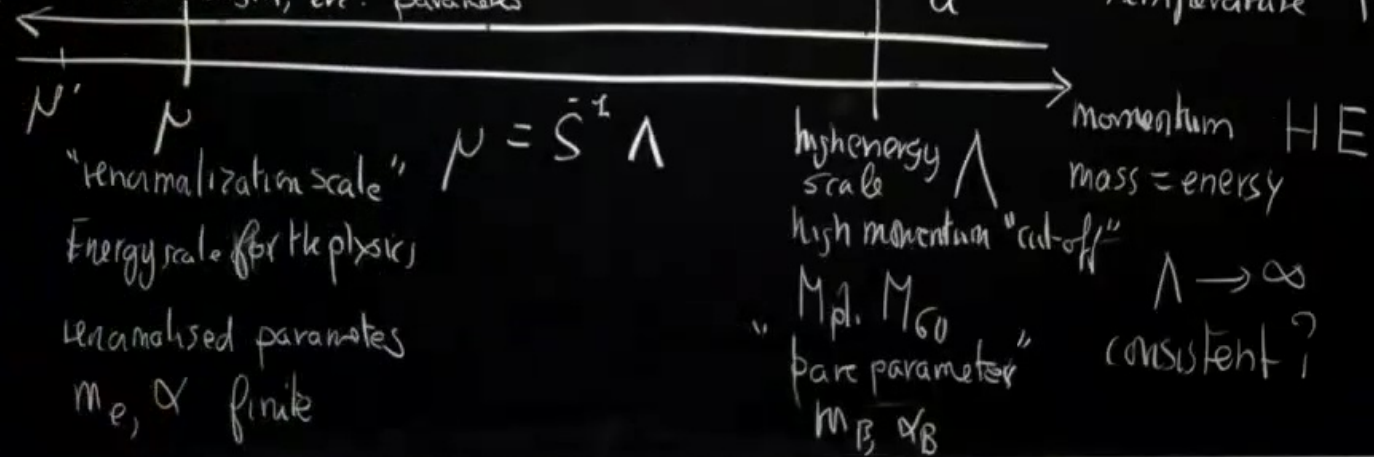 parameters
a
μ'
μ
μ = S⁻¹ Λ
"renormalization scale"
Energy scale for the physics
renormalised parameters
mₑ, α finite
high energy
scale
Λ
high momentum "cut-off"
Mpl. M
"bare parameter"
m_B, α_B
momentum HE
mass = energy
Λ → ∞
consistent?